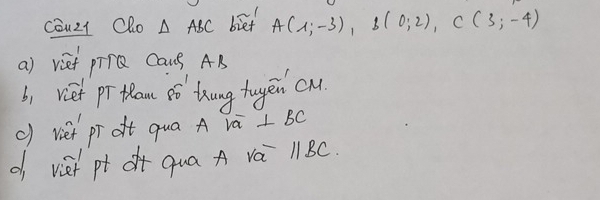 Câu 21 Cho Δ ABC biết A(1;-3), B(0;2), C(3;-4)
a) viết PTTQ cạnh AB
b, viết PT tham số trung tuyến CM.
c) viết PT đt qua A và ⊥ BC
d, viết pt đt qua A và // BC.